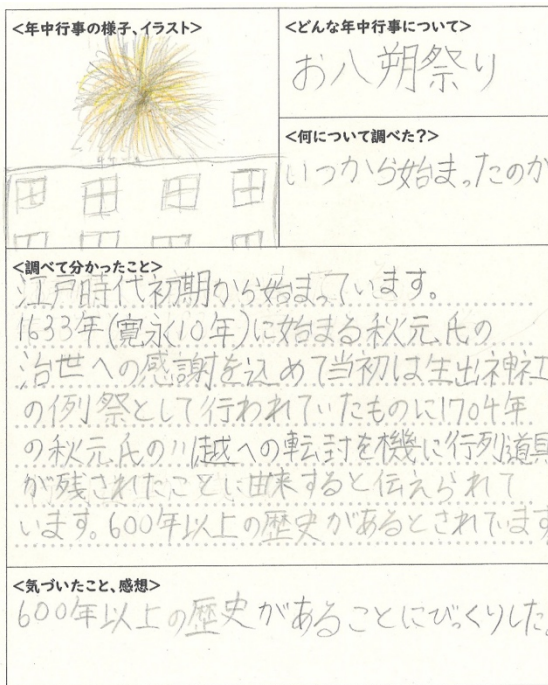 <年中行事の様子、イラスト>
<どんな年中行事について>
お八朔祭り
<何について調べた?>
いつから始まったのか
<調べて分かったこと>
江戸時代初期から始まっています。
1633年(寛永10年)に始まる秋元氏の
治世への感謝を込めて当初は生出神社
の例祭として行われていたものに1704年
の秋元氏の川越への転封を機に行列道具
が残されたことに由来すると伝えられて
います。600年以上の歴史があるとされています
<気づいたこと、感想>
600年以上の歴史があることにびっくりした。